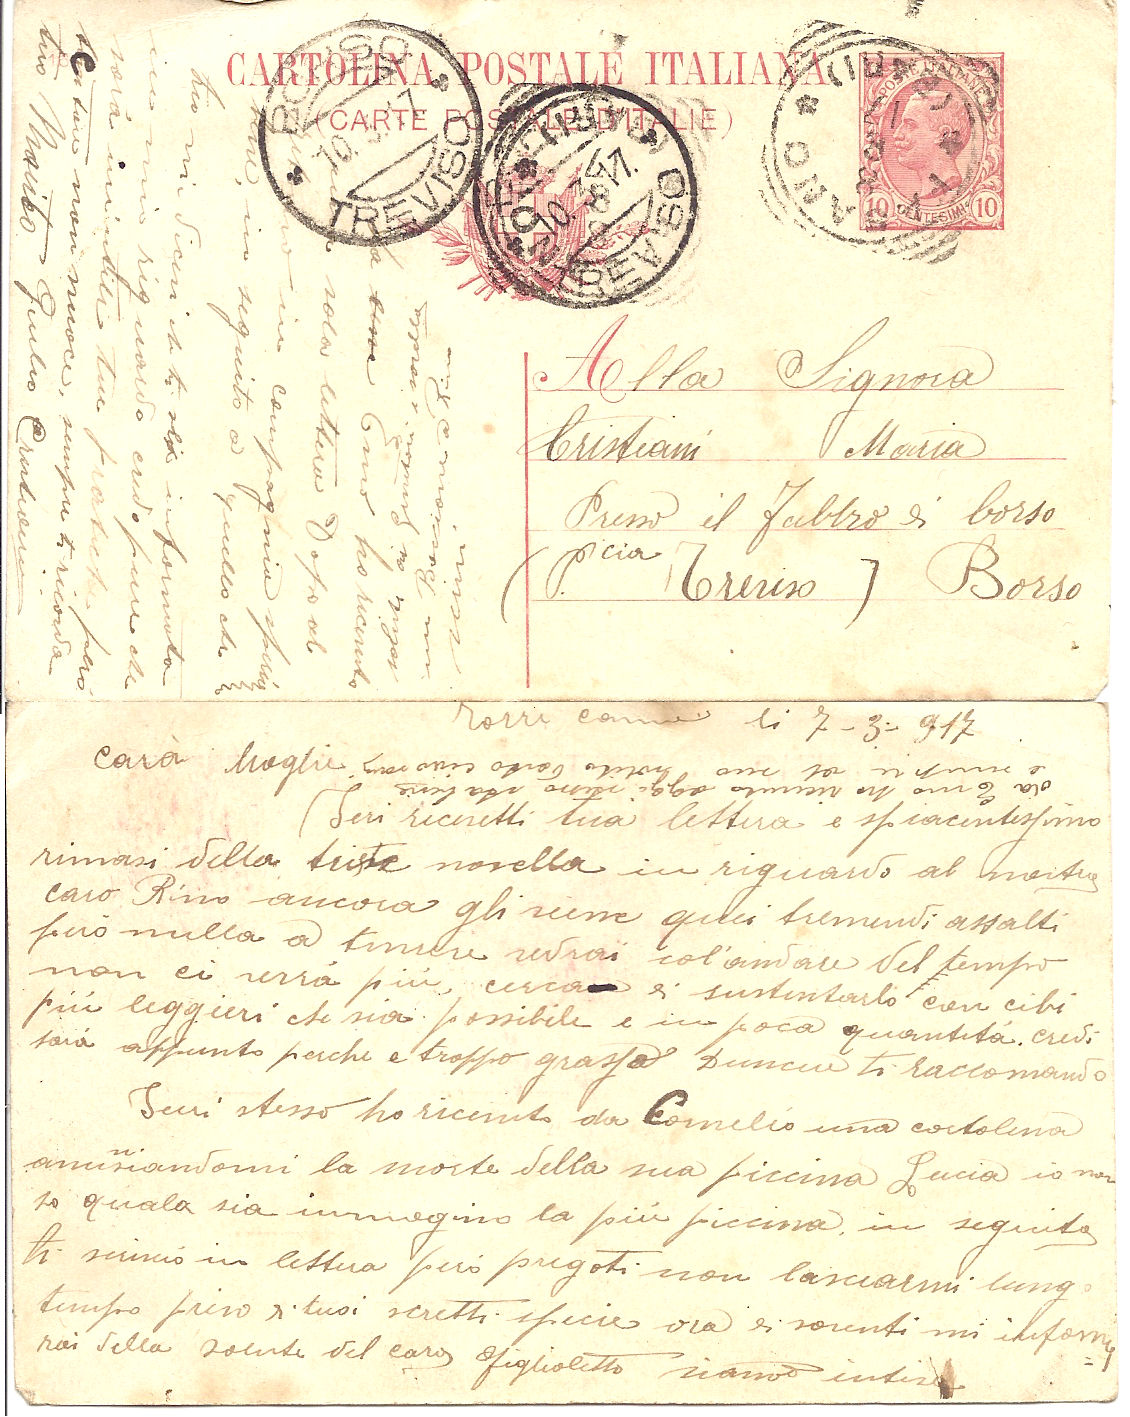 CARTOLINA POSTALE ITALIANA
(CARTE POSTALE D'ITALIE)
BORSO
10.3.17
TREVISO
10.3.17
TREVISO
POSTE ITALIANE
10 CENTESIMI 10
Alla Signora
Cristiani Maria
Presso il Fabbro di borso
(pcia Treviso) Borso
li 7-3-917
cara Moglie
Ieri ricevetti tua lettera e spiacentessimo
rimasi della triste novella in riguardo al nostro
caro Rino ancora gli viene quei tremendi assalti
peró nulla a temere vedrai col'andare del tempo
non ci verrá piú, cerca di sustentarlo con cibi
piú leggieri che sia possibile e in poca quantitá. credi
sará appunto perche e troppo grasso Duncue ti raccomando
Ieri stesso ho ricevuto da Cornelio una cartolina
anunsiandomi la morte della sua piccina Lucia io non
so quala sia immagino la piú piccina, in seguito
ti scrivió in lettera peró pregoti non lasciarmi lungo
tempo privo di tuoi scritti specie ora di soventi mi informe
rai della salute del caro figlioletto siamo intisi
da Erno ho ricevuto oggi
e
una sola lettera Dopo al
in compagnia
in seguito a quello che
tu mi dicevi
in mio riguardo credo pure che
sará inutile tue pratiche peró
tentare non nuoce, sempre ti ricorda
tuo Marito Giulio